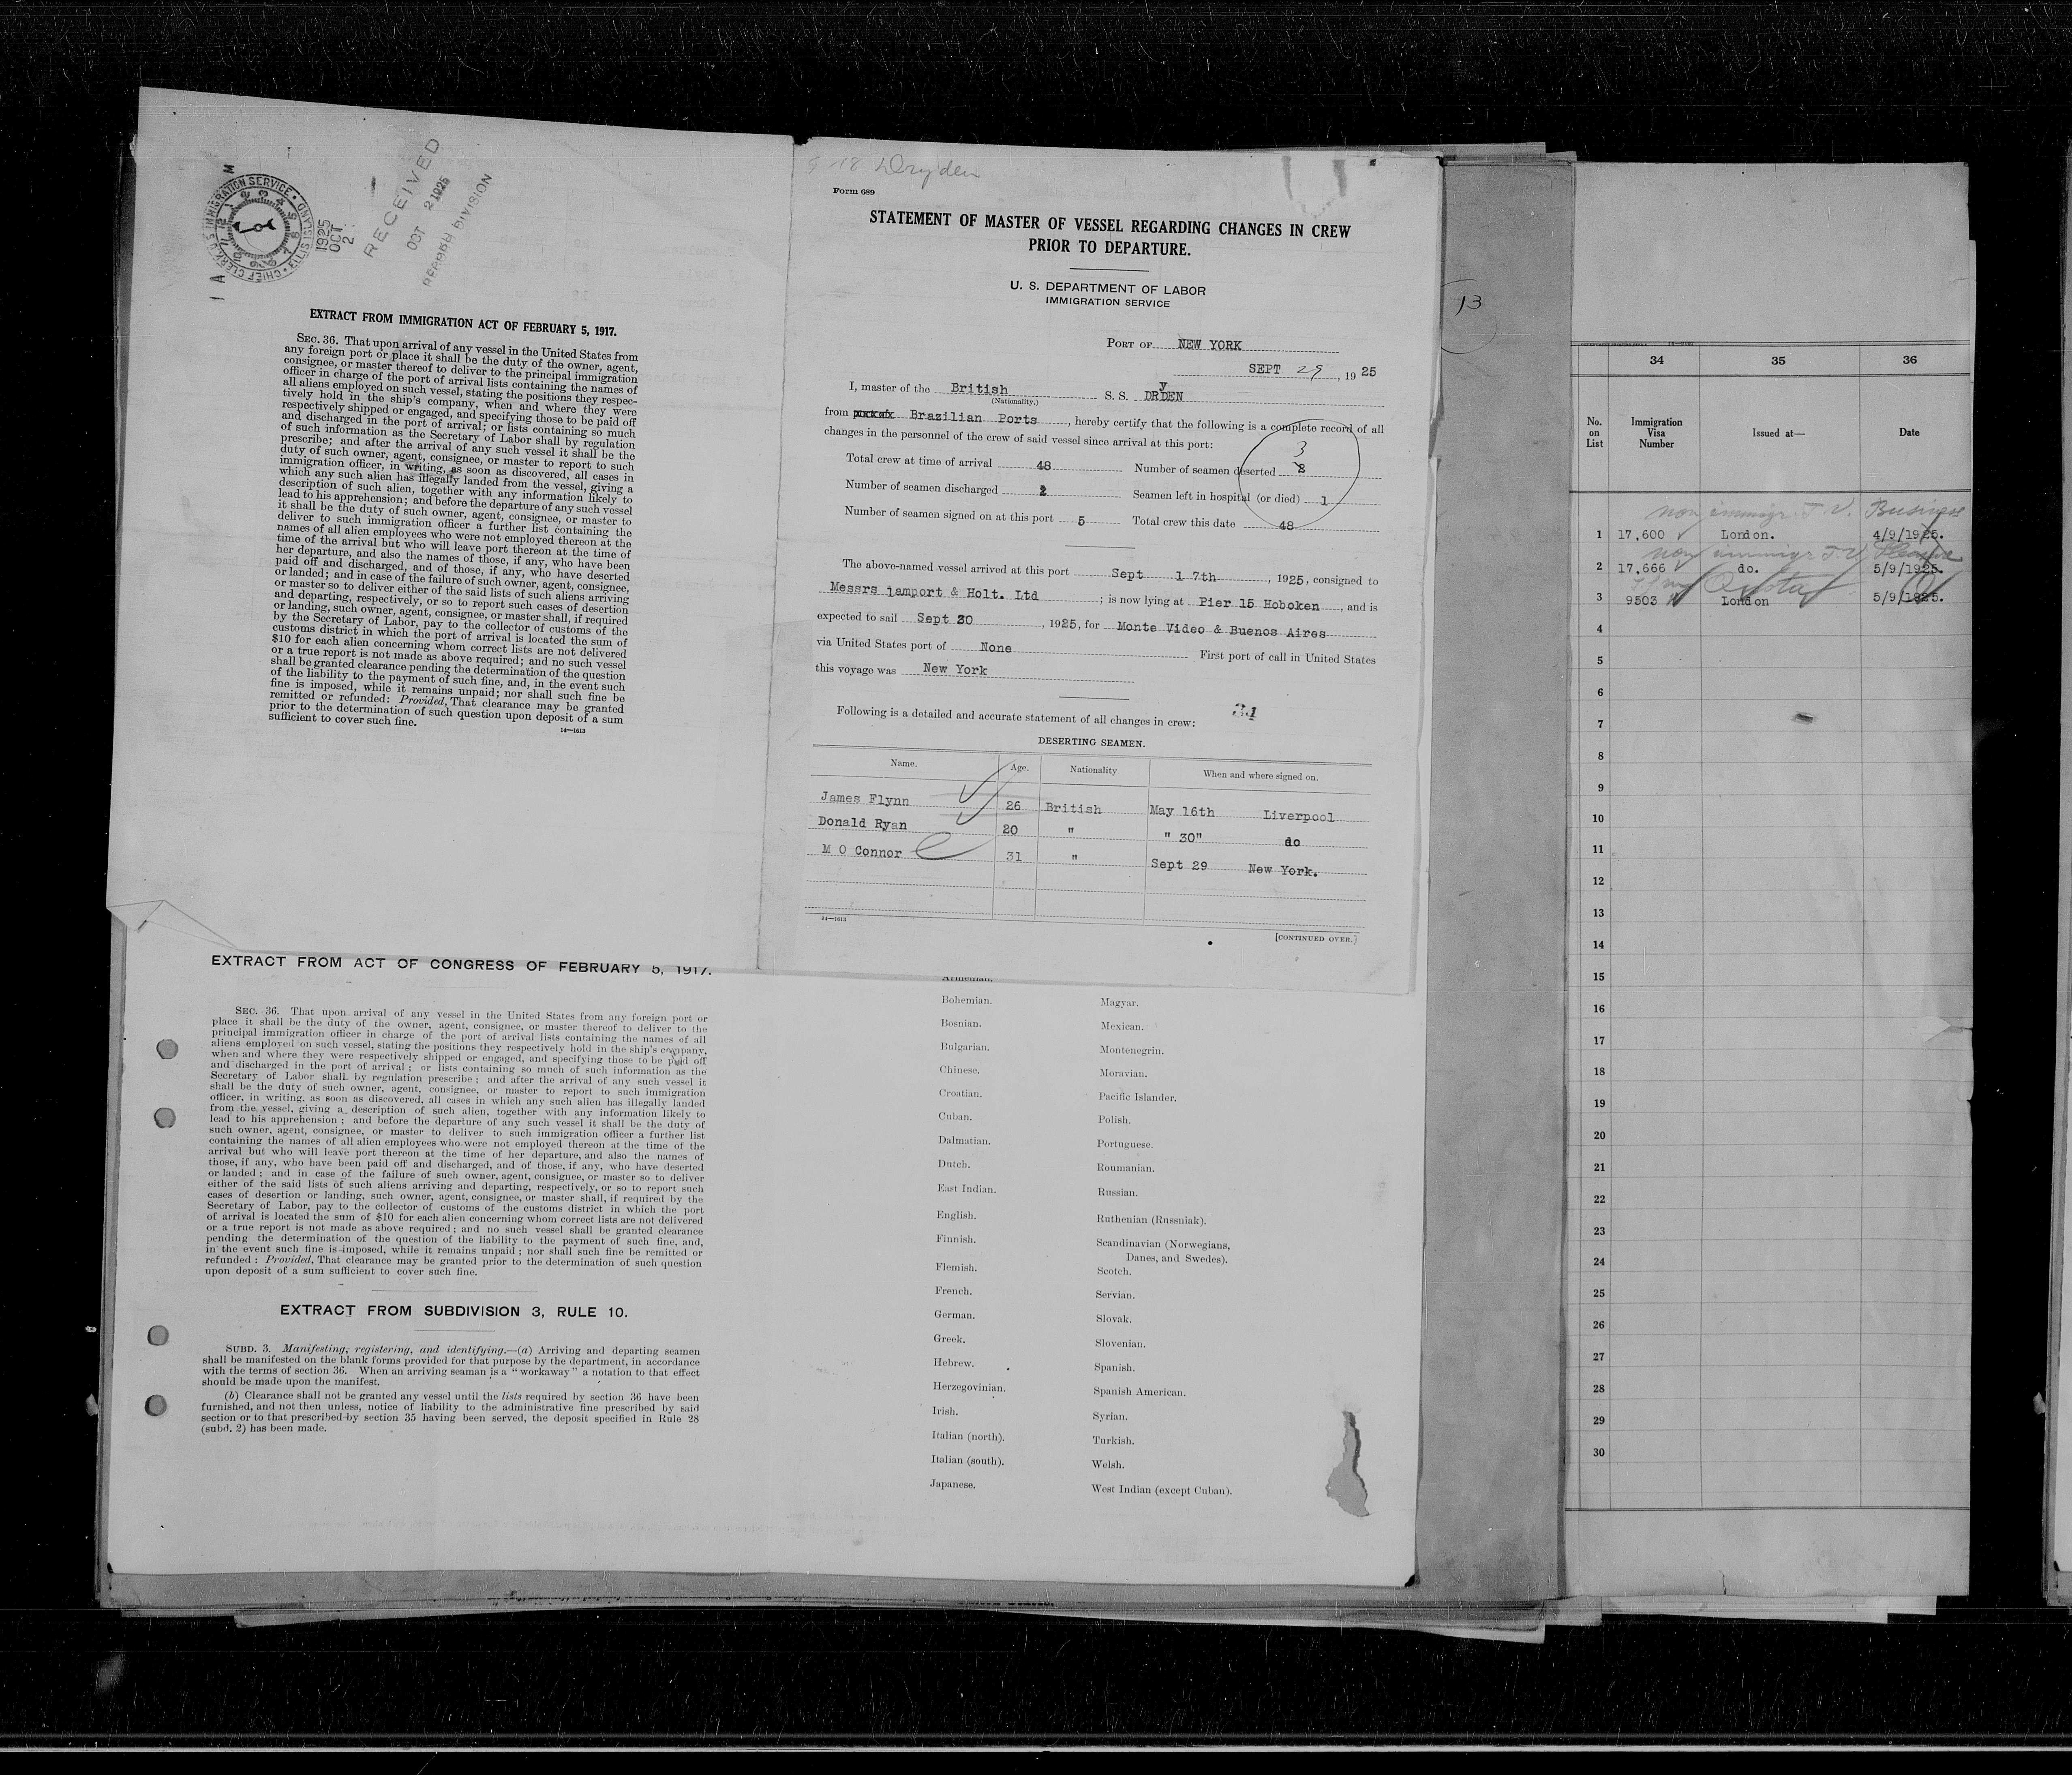 CHIEF CLERK U.S IMMIGRATION SERVICE
ELLIS ISLAND
1925
OCT
2
RECEIVED
OCT 2 1925
DIVISION
EXTRACT FROM IMMIGRATION ACT OF FEBRUARY 5, 1917.
SEC. 36. That upon arrival of any vessel in the United States from
any foreign port or place it shall be the duty of the owner, agent,
consignee, or master thereof to deliver to the principal immigration
officer in charge of the port of arrival lists containing the names of
all aliens employed on such vessel, stating the positions they respec-
tively hold in the ship's company, when and where they were
respectively shipped or engaged, and specifying those to be paid off
and discharged in the port of arrival; or lists containing so much
of such information as the Secretary of Labor shall by regulation
prescribe; and after the arrival of any such vessel it shall be the
duty of such owner, agent, consignee, or master to report to such
immigration officer, in writing, as soon as discovered, all cases in
which any such alien has illegally landed from the vessel, giving a
description of such alien, together with any information likely to
lead to his apprehension; and before the departure of any such vessel
it shall be the duty of such owner, agent, consignee, or master to
deliver to such immigration officer a further list containing the
names of all alien employees who were not employed thereon at the
time of the arrival but who will leave port thereon at the time of
her departure, and also the names of those, if any, who have been
paid off and discharged, and of those, if any, who have deserted
or landed; and in case of the failure of such owner, agent, consignee,
or master so to deliver either of the said lists of such aliens arriving
and departing, respectively, or so to report such cases of desertion
or landing, such owner, agent, consignee, or master shall, if required
by the Secretary of Labor, pay to the collector of customs of the
customs district in which the port of arrival is located the sum of
$10 for each alien concerning whom correct lists are not delivered
or a true report is not made as above required; and no such vessel
shall be granted clearance pending the determination of the question
of the liability to the payment of such fine, and, in the event such
fine is imposed, while it remains unpaid; nor shall such fine be
remitted or refunded: Provided, That clearance may be granted
prior to the determination of such question upon deposit of a sum
sufficient to cover such fine.
14—1613
9 18 Dryden
Form 689
STATEMENT OF MASTER OF VESSEL REGARDING CHANGES IN CREW
PRIOR TO DEPARTURE.
U. S. DEPARTMENT OF LABOR
IMMIGRATION SERVICE
PORT OF NEW YORK
SEPT 29, 1925
I, master of the British S. S. DRyDEN
(Nationality.)
from Brazilian Ports, hereby certify that the following is a complete record of all
changes in the personnel of the crew of said vessel since arrival at this port:
Total crew at time of arrival 48 Number of seamen deserted 2 3
Number of seamen discharged 2 Seamen left in hospital (or died) 1
Number of seamen signed on at this port 5 Total crew this date 48
The above-named vessel arrived at this port Sept 17th, 1925, consigned to
Messrs jamport & Holt. Ltd; is now lying at Pier 15 Hoboken, and is
expected to sail Sept 30, 1925, for Monte Video & Buenos Aires
via United States port of None First port of call in United States
this voyage was New York
Following is a detailed and accurate statement of all changes in crew: 31
DESERTING SEAMEN.
Name. Age. Nationality When and where signed on.
James Flynn 26 British May 16th Liverpool
Donald Ryan 20 " " 30" do
M O Connor 31 " Sept 29 New York.
14—1613
[CONTINUED OVER.]
EXTRACT FROM ACT OF CONGRESS OF FEBRUARY 5, 1917.
SEC. 36. That upon arrival of any vessel in the United States from any foreign port or
place it shall be the duty of the owner, agent, consignee, or master thereof to deliver to the
principal immigration officer in charge of the port of arrival lists containing the names of all
aliens employed on such vessel, stating the positions they respectively hold in the ship's company,
when and where they were respectively shipped or engaged, and specifying those to be paid off
and discharged in the port of arrival; or lists containing so much of such information as the
Secretary of Labor shall by regulation prescribe; and after the arrival of any such vessel it
shall be the duty of such owner, agent, consignee, or master to report to such immigration
officer, in writing, as soon as discovered, all cases in which any such alien has illegally landed
from the vessel, giving a description of such alien, together with any information likely to
lead to his apprehension; and before the departure of any such vessel it shall be the duty of
such owner, agent, consignee, or master to deliver to such immigration officer a further list
containing the names of all alien employees who were not employed thereon at the time of the
arrival but who will leave port thereon at the time of her departure, and also the names of
those, if any, who have been paid off and discharged, and of those, if any, who have deserted
or landed; and in case of the failure of such owner, agent, consignee, or master so to deliver
either of the said lists of such aliens arriving and departing, respectively, or so to report such
cases of desertion or landing, such owner, agent, consignee, or master shall, if required by the
Secretary of Labor, pay to the collector of customs of the customs district in which the port
of arrival is located the sum of $10 for each alien concerning whom correct lists are not delivered
or a true report is not made as above required; and no such vessel shall be granted clearance
pending the determination of the question of the liability to the payment of such fine, and,
in the event such fine is imposed, while it remains unpaid; nor shall such fine be remitted or
refunded: Provided, That clearance may be granted prior to the determination of such question
upon deposit of a sum sufficient to cover such fine.
EXTRACT FROM SUBDIVISION 3, RULE 10.
SUBD. 3. Manifesting, registering, and identifying.—(a) Arriving and departing seamen
shall be manifested on the blank forms provided for that purpose by the department, in accordance
with the terms of section 36. When an arriving seaman is a "workaway" a notation to that effect
should be made upon the manifest.
(b) Clearance shall not be granted any vessel until the lists required by section 36 have been
furnished, and not then unless, notice of liability to the administrative fine prescribed by said
section or to that prescribed by section 35 having been served, the deposit specified in Rule 28
(subd. 2) has been made.
Armenian.
Bohemian. Magyar.
Bosnian. Mexican.
Bulgarian. Montenegrin.
Chinese. Moravian.
Croatian. Pacific Islander.
Cuban. Polish.
Dalmatian. Portuguese.
Dutch. Roumanian.
East Indian. Russian.
English. Ruthenian (Russniak).
Finnish. Scandinavian (Norwegians,
Danes, and Swedes).
Flemish. Scotch.
French. Servian.
German. Slovak.
Greek. Slovenian.
Hebrew. Spanish.
Herzegovinian. Spanish American.
Irish. Syrian.
Italian (north). Turkish.
Italian (south). Welsh.
Japanese. West Indian (except Cuban).
13
34 35 36
No. on List Immigration Visa Number Issued at— Date
non immigr. T.V. Business
1 17,600 London. 4/9/1925.
non immigr T.V Pleasure
2 17,666 do. 5/9/1925.
Quota
3 9503 London 5/9/1925.
4
5
6
7
8
9
10
11
12
13
14
15
16
17
18
19
20
21
22
23
24
25
26
27
28
29
30